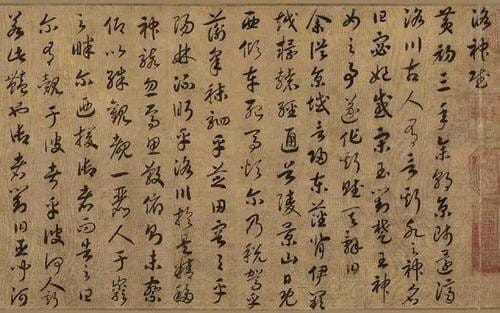 洛神賦
黃初三年余朝京師還濟
洛川古人有言斯水之神名
曰宓妃感宋玉對楚王神
女之事遂作斯賦其辭曰
余從京域言歸東藩背伊闕
越轘轅經通谷陵景山日既
西傾車殆馬煩爾乃稅駕乎
蘅皋秣駟乎芝田容與乎
陽林流眄乎洛川於是精移
神駭忽焉思散俯則未察
仰以殊觀覩一麗人于巖
之畔爾迺援御者而告之曰
爾有覿于彼者乎彼何人斯
若此艷也御者對曰臣聞河